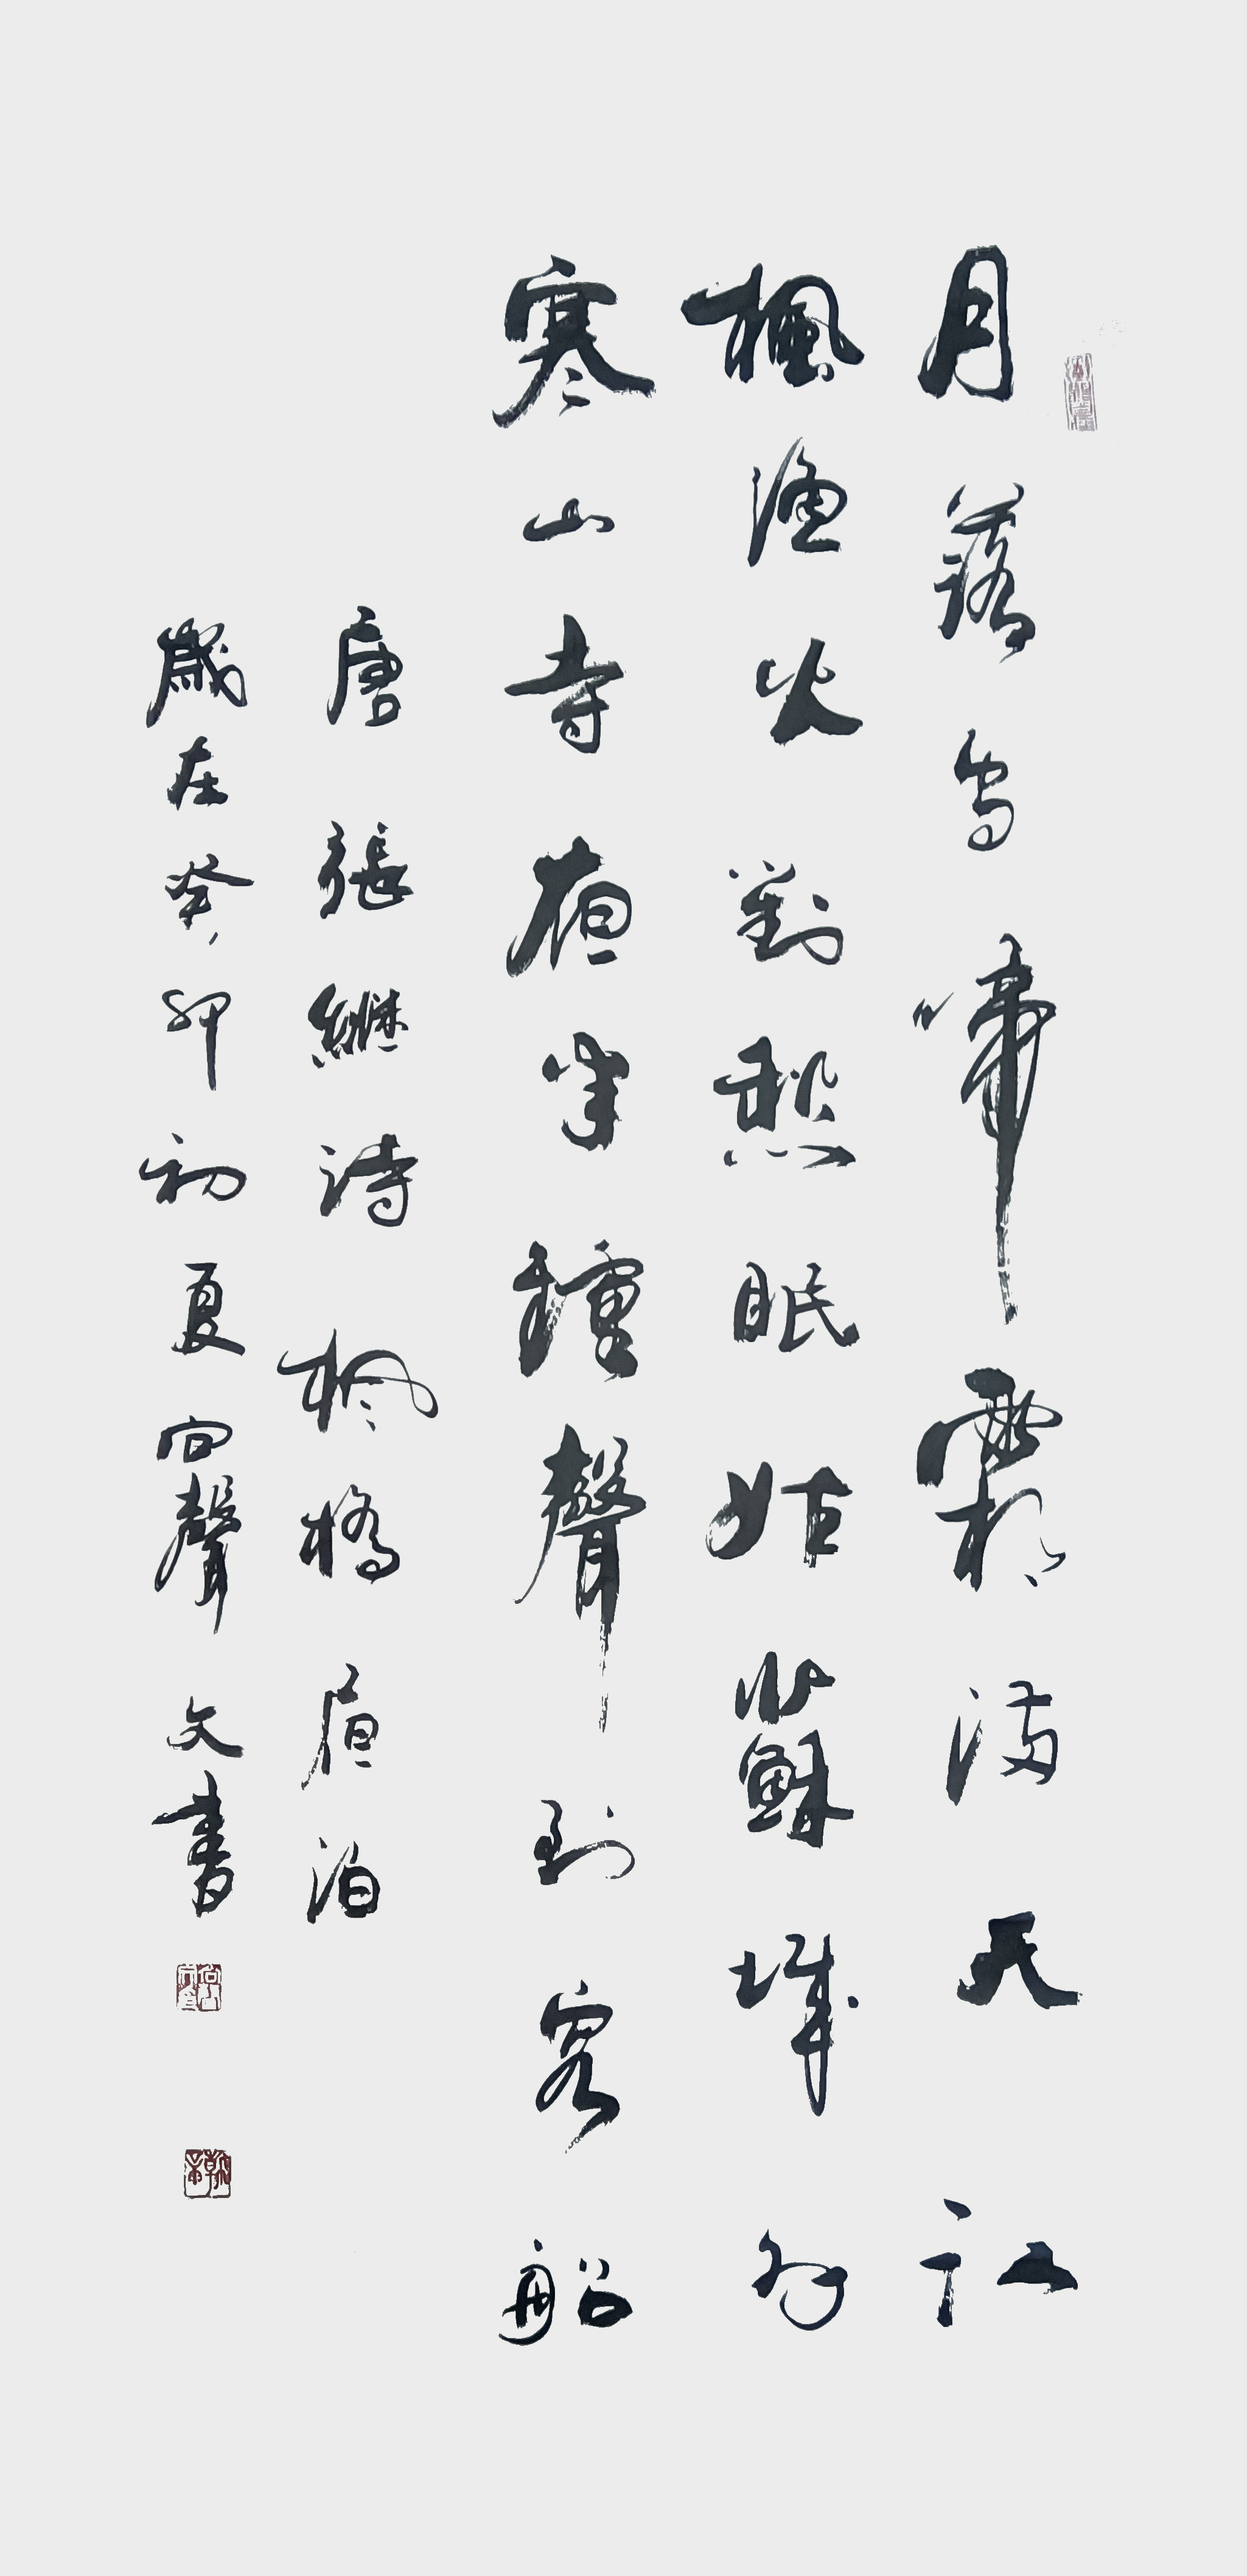 月落烏啼霜滿天江
楓漁火對愁眠姑蘇城外
寒山寺夜半鐘聲到客船
唐張繼詩楓橋夜泊
歲在癸卯初夏向聲文書